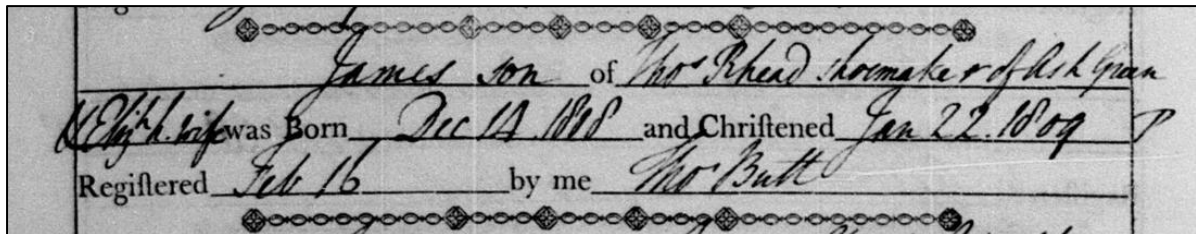 James son of Thos Rhead shoemaker of Ash Green
& Elizth h. wife was Born Dec 14 1808 and Chriſtened Jan 22. 1809 P
Regiſtered Feb 16 by me Thos Butt